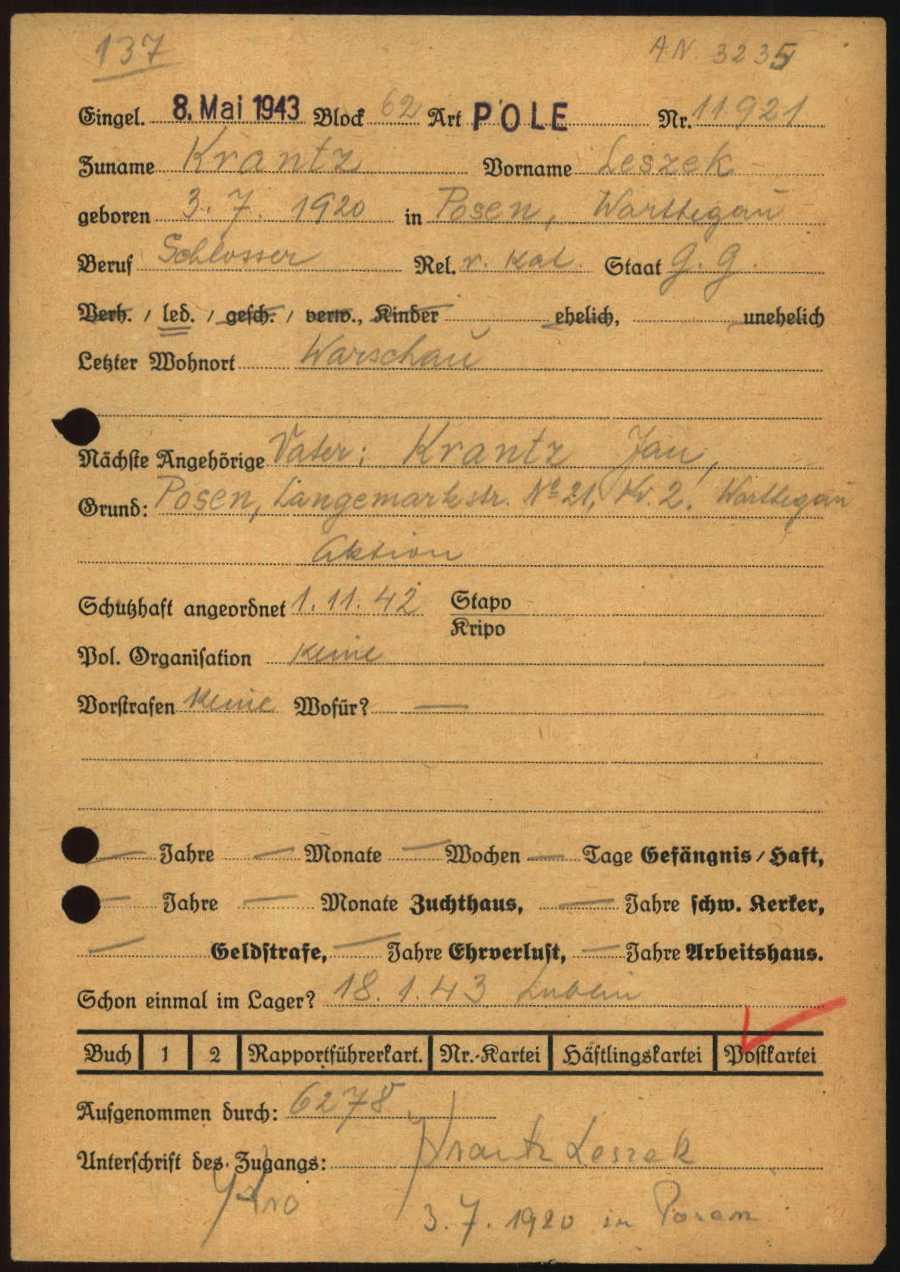 137 A.N. 3235
Eingel. 8. Mai 1943 Block 62 Art POLE Nr. 11921
Zuname Krantz Vorname Leszek
geboren 3. 7. 1920 in Posen, Warthegau
Beruf Schlosser Rel. r. kat. Staat G. G.
Verh. / led. / gesch. / verw., Kinder ehelich, unehelich
Letzter Wohnort Warschau
Nächste Angehörige Vater: Krantz Jan,
Grund: Posen, Langemarkstr. No 21, Kr. 2. Warthegau
Aktion
Schutzhaft angeordnet 1. 11. 42 Stapo
Kripo
Pol. Organisation keine
Vorstrafen keine Wofür? —
— Jahre — Monate — Wochen — Tage Gefängnis / Haft,
— Jahre — Monate Zuchthaus, — Jahre schw. Kerker,
— Geldstrafe, — Jahre Ehrverlust, — Jahre Arbeitshaus.
Schon einmal im Lager? 18. 1. 43 Lublin
Buch 1 2 Rapportführerkart. Nr.-Kartei Häftlingskartei Postkartei
Aufgenommen durch: 6278
Unterschrift des Zugangs: Krantz Leszek
3. 7. 1920 in Posen